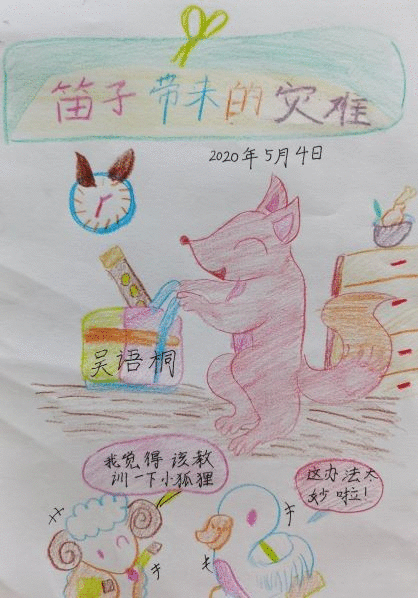 笛子带来的灾难
2020年5月4日
吴语桐
我觉得该教
训一下小狐狸
这办法太
妙啦!